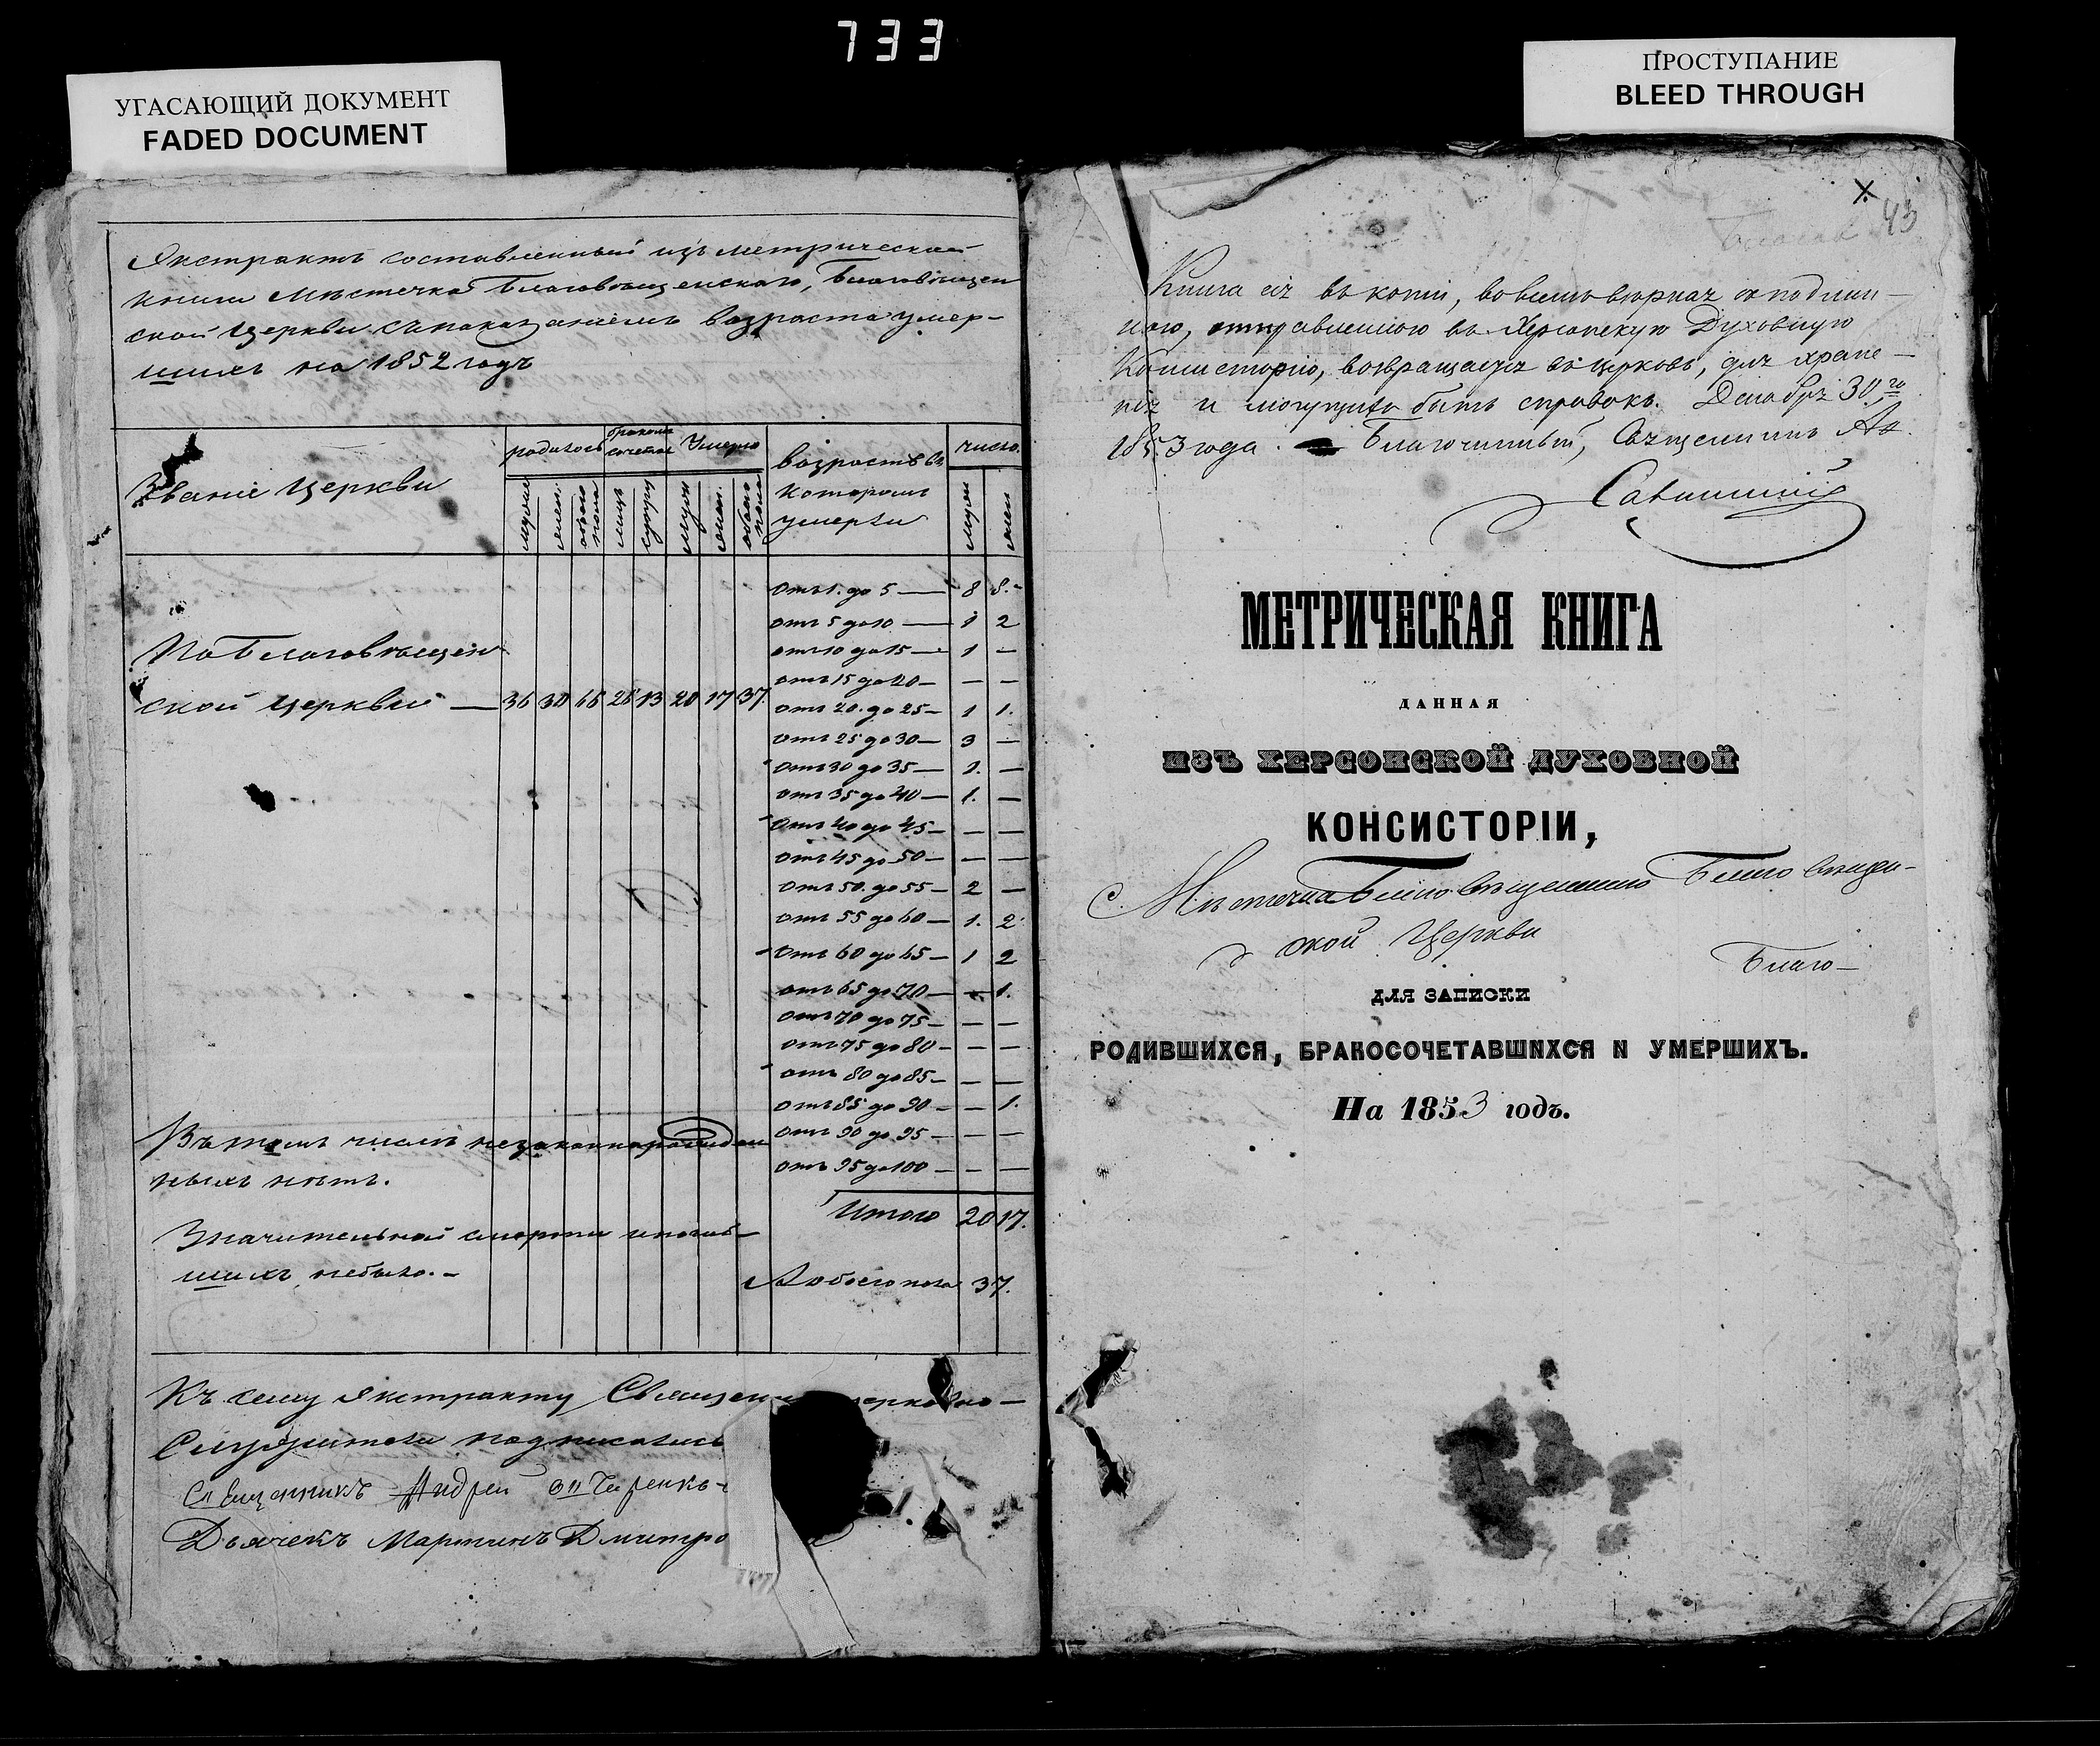 733
УГАСАЮЩИЙ ДОКУМЕНТ
FADED DOCUMENT
ПРОСТУПАНИЕ
BLEED THROUGH
Экстрактъ составленный изъ метрической
книги Мѣстечка Благовѣщенскаго, Благовѣщен
ской Церкви съ показаніемъ возраста умер-
шихъ на 1852 годъ
Званіе Церкви
родилось
бракомъ сочетал
Умерло
возрастъ въ
которомъ
умерли
число.
обоего пола
лицъ
супру
обоего пола
По Благовѣщен
ской Церкви — 36 30 66 26 13 20 17 37.
отъ 1. до 5 — 8 8.-
отъ 5 до 10 — 1 2
отъ 10 до 15 — 1 —
отъ 15 до 20 — — —
отъ 20. до 25 — 1 1.
отъ 25 до 30 — 3 —
отъ 30 до 35 — 1. —
отъ 35 до 40 — 1. —
отъ 40 до 45 — — —
отъ 45 до 50 — — —
отъ 50. до 55 — 2 —
отъ 55 до 60 — 1. 2.
отъ 60 до 65 — 1 2
отъ 65 до 70 — — 1.
отъ 70 до 75 — — —
отъ 75 до 80 — — —
отъ 80 до 85 — — —
отъ 85 до 90 — — 1.
отъ 90 до 95 — — —
отъ 95 до 100 — — —
Итого 20 17.
А обоего пола 37.
Въ томъ числѣ незаконнорожден
ныхъ нѣтъ.
Значительной смерти
шихъ небыло.-
Къ сему экстракту
Служители подписались
Священникъ Андрей
Дьячекъ Мартинъ Дмитро
Х.
43
Книга сія въ копіи, во всемъ вѣрная съ подлин-
ною, отправленною въ Херсонскую Духовную
Консисторію, возвращается въ церковь, для хране-
нія и могущихъ быть справокъ. Декабря 30го
1853 года. Благочинный, Священникъ
Савицкий
МЕТРИЧЕСКАЯ КНИГА
ДАННАЯ
ИЗЪ ХЕРСОНСКОЙ ДУХОВНОЙ
КОНСИСТОРІИ,
Мѣстечка Благовѣщенскаго Благовѣщен-
ской Церкви
Благо-
ДЛЯ ЗАПИСКИ
РОДИВШИХСЯ, БРАКОСОЧЕТАВШИХСЯ И УМЕРШИХЪ.
На 1853 годъ.